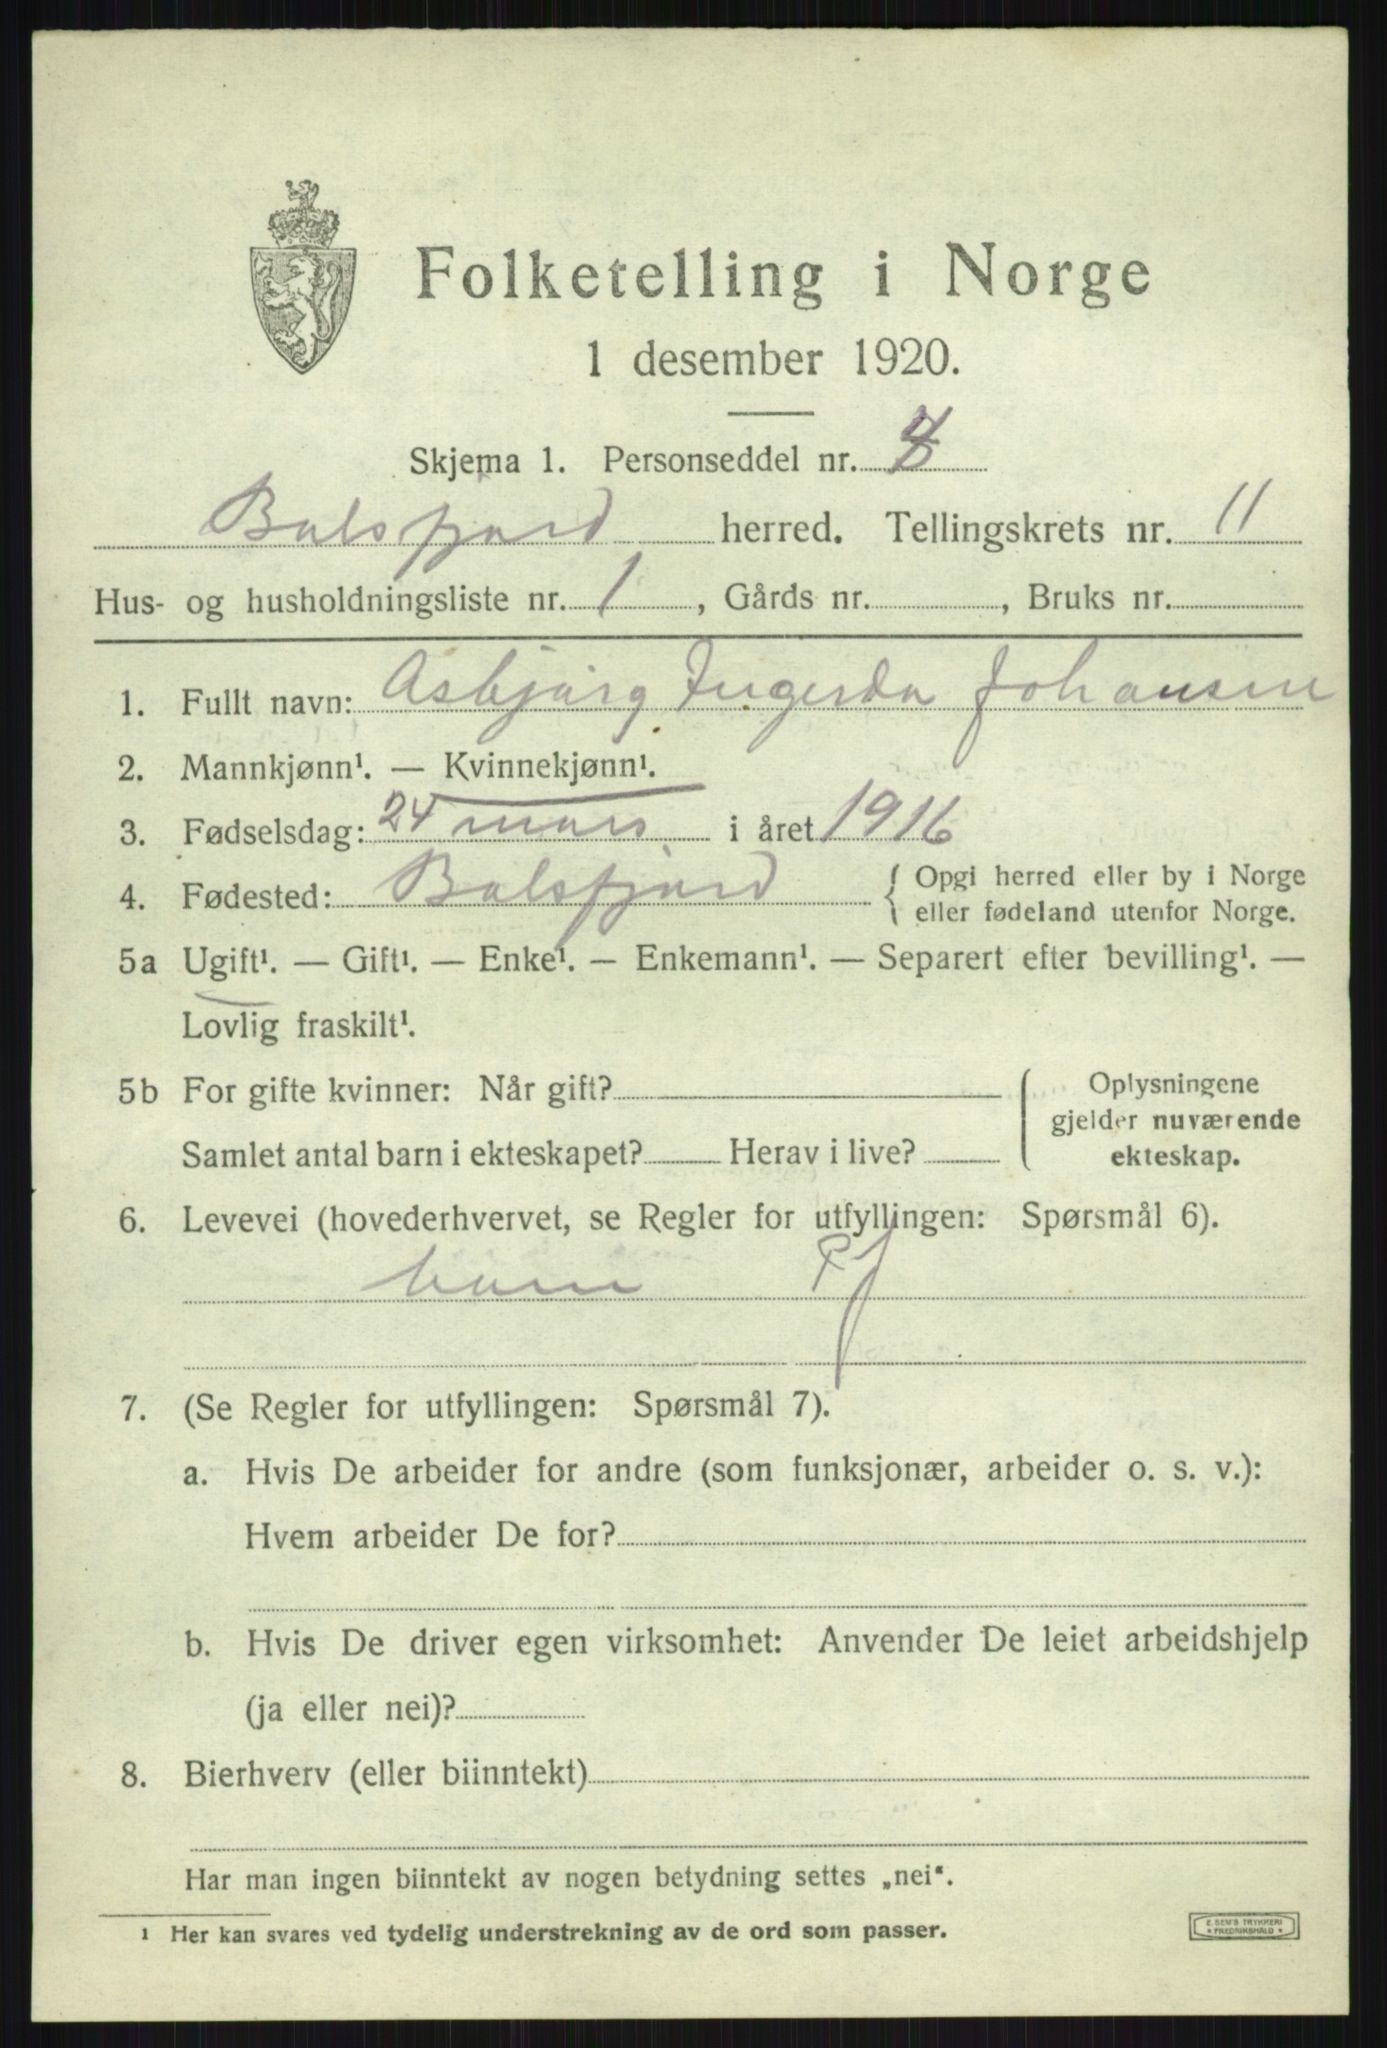 Folketelling i Norge
1 desember 1920.
Skjema 1. Personseddel nr.
Balsfjord herred. Tellingskrets nr. 11
Hus- og husholdningsliste nr. 1, Gårds nr. , Bruks nr.
1. Fullt navn: Asbjørg Ingerda Johansen
2. Mannkjønn¹. — Kvinnekjønn¹.
3. Fødselsdag: 24 mars i året 1916
4. Fødested: Balsfjord { Opgi herred eller by i Norge
eller fødeland utenfor Norge.
5a Ugift¹. — Gift¹. — Enke¹. — Enkemann¹. — Separert efter bevilling¹. —
Lovlig fraskilt¹.
5b For gifte kvinner: Når gift? Oplysningene
gjelder nuværende
Samlet antal barn i ekteskapet? Herav i live? ekteskap.
6. Levevei (hovederhvervet, se Regler for utfyllingen: Spørsmål 6).
barn
7. (Se Regler for utfyllingen: Spørsmål 7).
a. Hvis De arbeider for andre (som funksjonær, arbeider o. s. v.):
Hvem arbeider De for?
b. Hvis De driver egen virksomhet: Anvender De leiet arbeidshjelp
(ja eller nei)?
8. Bierhverv (eller biinntekt)
Har man ingen biinntekt av nogen betydning settes „nei“.
¹ Her kan svares ved tydelig understrekning av de ord som passer.
E. SEM'S TRYKKERI
FREDRIKSHALD